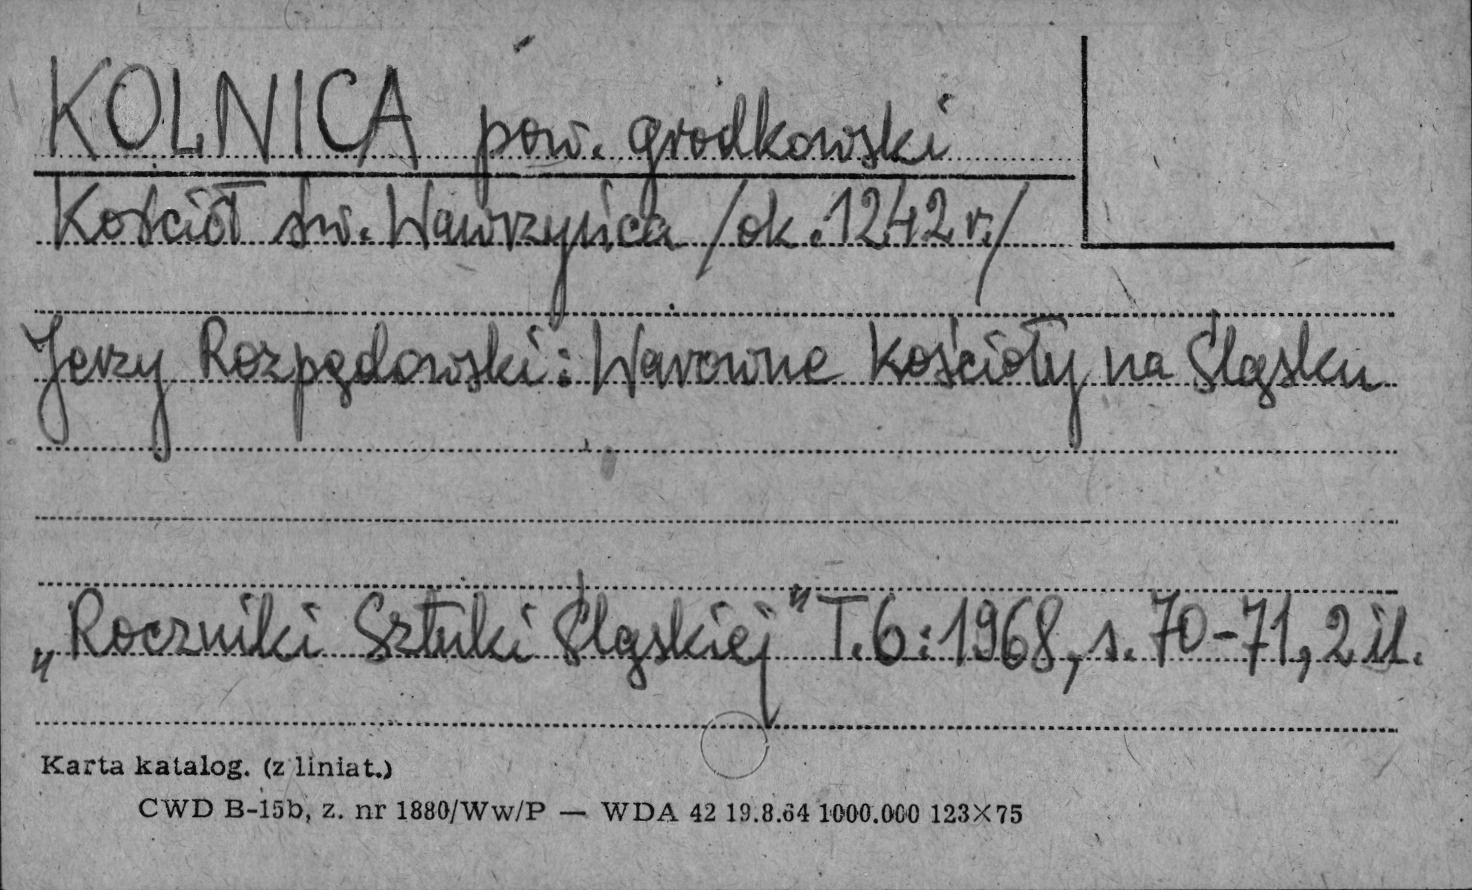 KOLNICA pow. grodkowski
Kościół św. Wawrzyńca /ok. 1242 r./
Jerzy Rozpędowski: Warowne kościoły na Śląsku
„Roczniki Sztuki Śląskiej" T.6:1968, s. 70-71, 2 il.
Karta katalog. (z liniat.)
CWD B-15b, z. nr 1880/Ww/P — WDA 42 19.8.64 1000.000 123×75